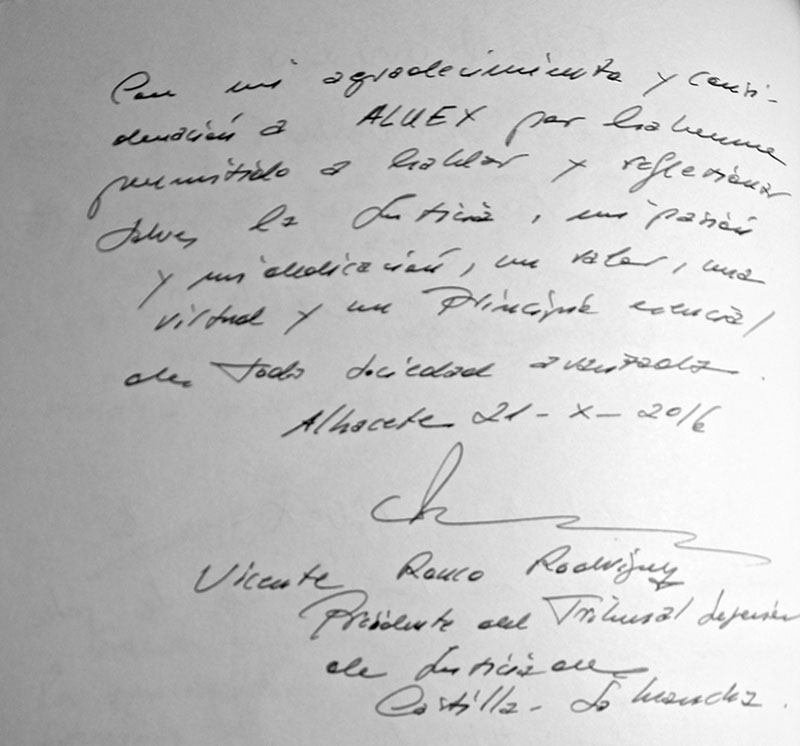 Con mi agradecimiento y consi-
deración a ALUEX por haberme
permitido a hablar y reflexionar
sobre la Justicia, mi pasión
y mi dedicación, un valor, una
virtud y un Principio esencial
de toda sociedad avanzada.
Albacete 21-X-2016
Vicente Rouco Rodríguez
Presidente del Tribunal Superior
de Justicia de
Castilla-La Mancha.